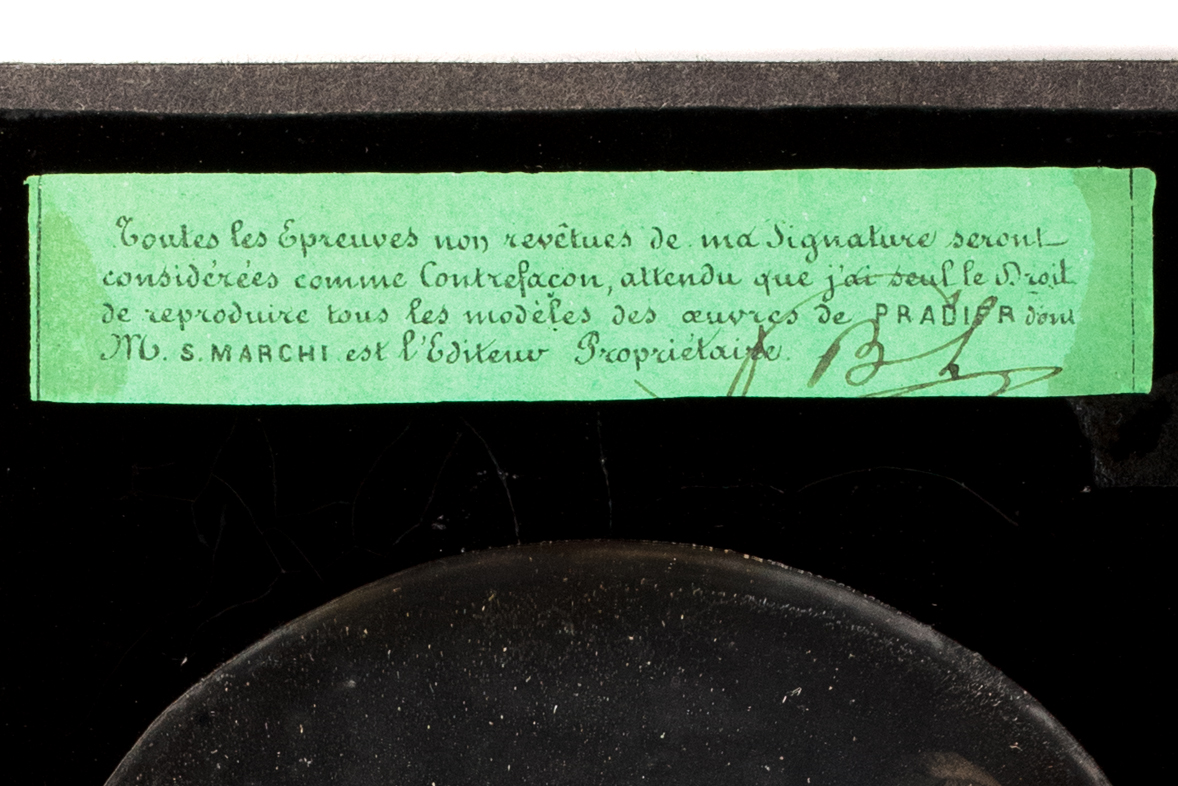 Toutes les Epreuves non revêtues de ma Signature seront
considérées comme Contrefaçon, attendu que j'ai seul le Droit
de reproduire tous les modèles des œuvres de PRADIER dont
M. S. MARCHI est l'Editeur Propriétaire.